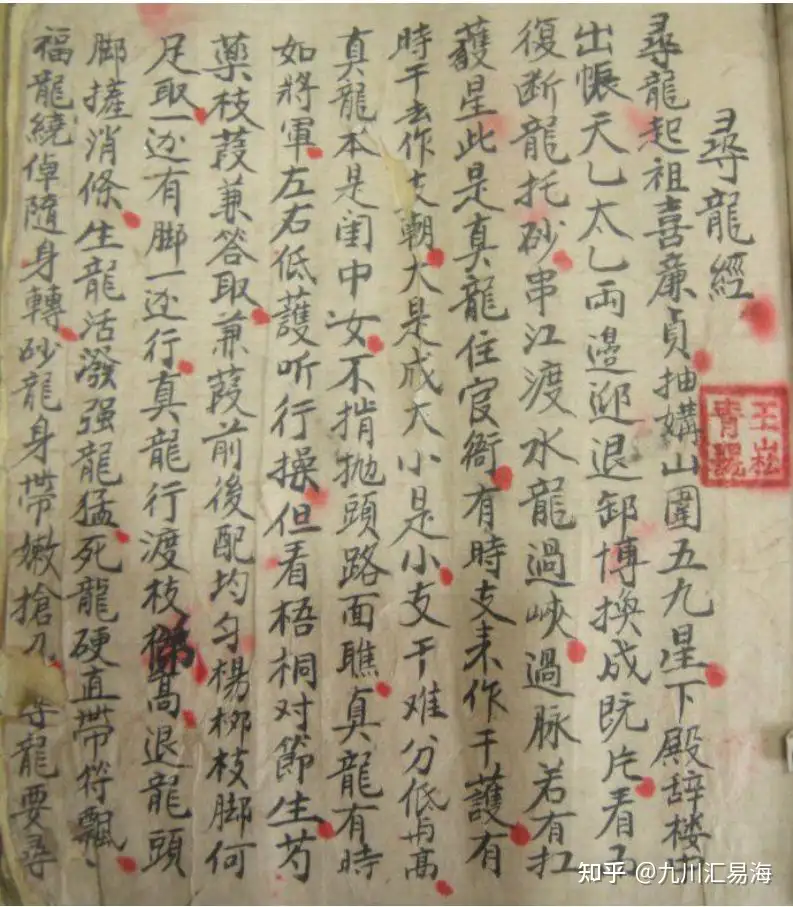 尋龍經
尋龍起祖喜廉貞抽媾山圍五九星下殿辞楼
出帳天乙太乙兩邉迎退卸博換成既片看
復断龍托砂串江渡水龍過峽過脉若有扛
護星此是真龍住官衙有時支来作干護有
時干去作支朝大是成大小是小支干难分低与高
真龍本是闺中女不揹抛頭路面瞧真龍有時
如將軍左右低護听行操但看梧桐对節生芍
薬枝葭兼答取蒹葭前後配均匀楊柳枝脚何
足取一边有脚一边行真龍行渡枝髙退龍頭
脚搓消條生龍活潑强龍猛死龍硬直带符飄
福龍繞倬隨身轉砂龍身帶嫩搶尋龍要尋
王崧
青
知乎 @九川汇易海